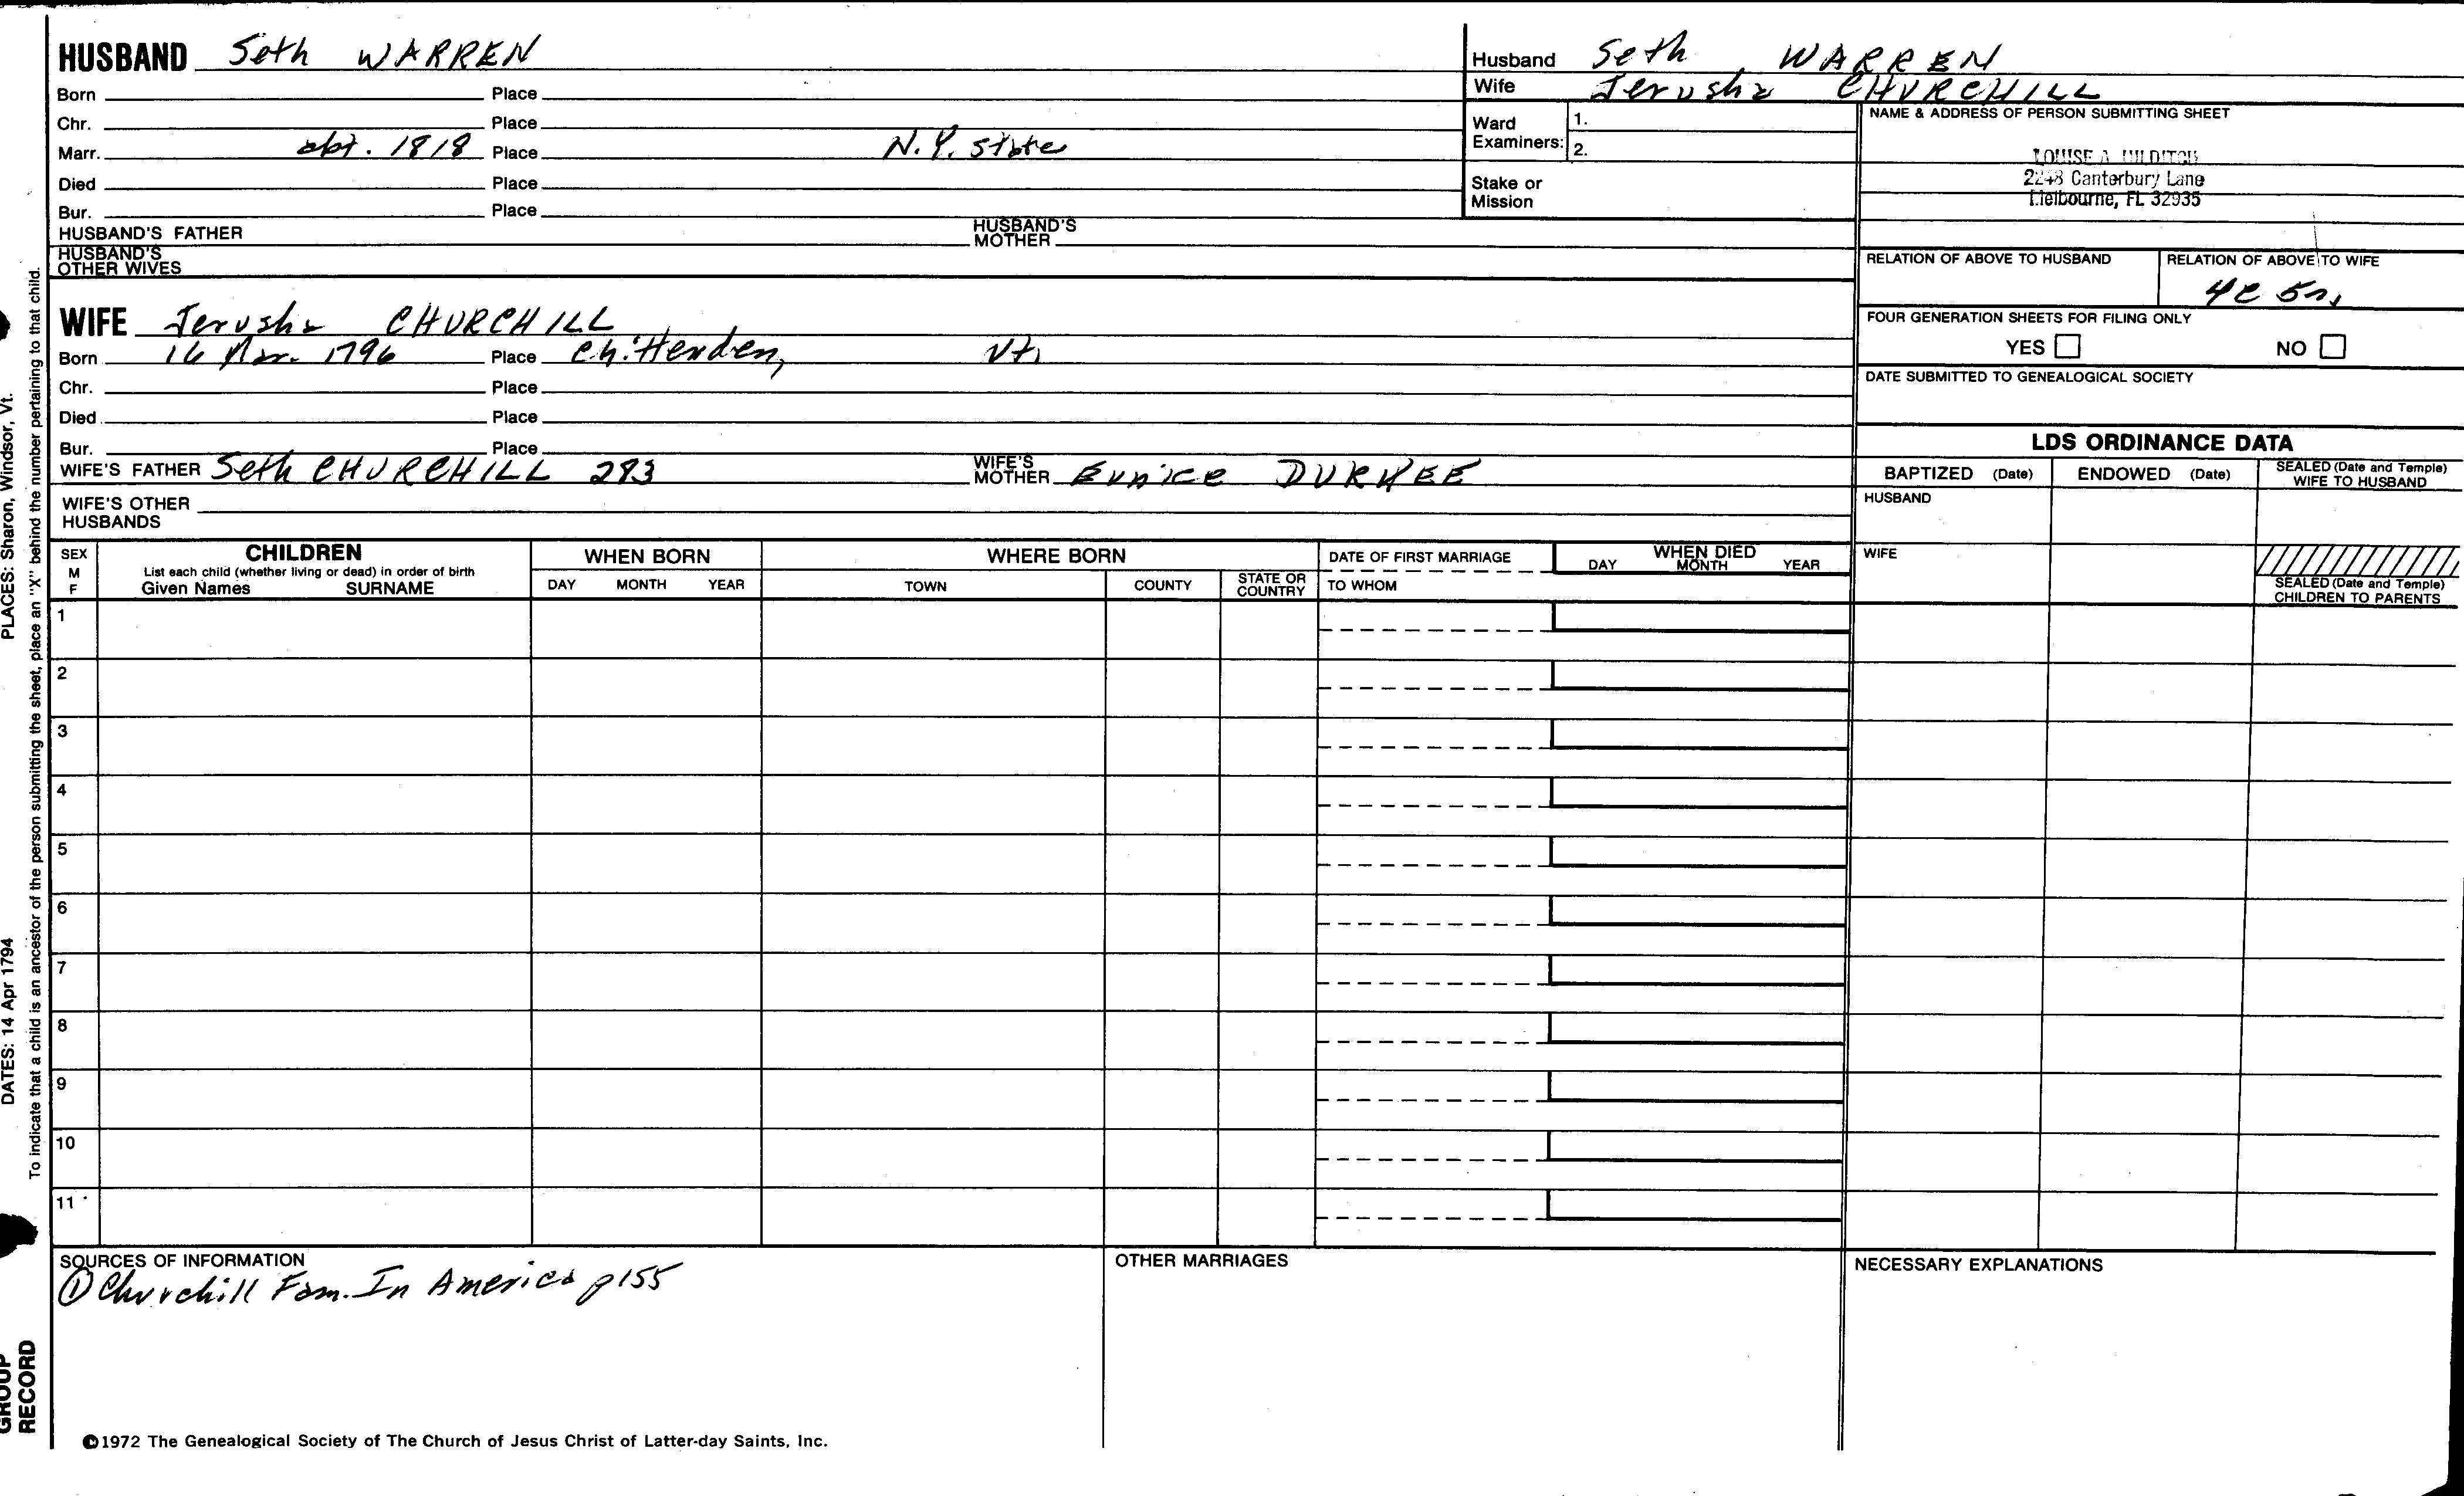 HUSBAND Seth WARREN
Born Place
Chr. Place
Marr. abt. 1818 Place N.Y. state
Died Place
Bur. Place
HUSBAND'S FATHER HUSBAND'S MOTHER
HUSBAND'S OTHER WIVES
Husband Seth WARREN
Wife Jerusha CHURCHILL
Ward Examiners: 1.
2.
Stake or Mission
NAME & ADDRESS OF PERSON SUBMITTING SHEET
LOUISE A
2248 Canterbury Lane
Melbourne, FL 32935
RELATION OF ABOVE TO HUSBAND RELATION OF ABOVE TO WIFE
4C 5r,
FOUR GENERATION SHEETS FOR FILING ONLY
YES NO
DATE SUBMITTED TO GENEALOGICAL SOCIETY
WIFE Jerusha CHURCHILL
Born 16 Mar. 1796 Place Chittenden, Vt,
Chr. Place
Died Place
Bur. Place
WIFE'S FATHER Seth CHURCHILL 283 WIFE'S MOTHER Eunice DURKEE
WIFE'S OTHER HUSBANDS
LDS ORDINANCE DATA
BAPTIZED (Date) ENDOWED (Date) SEALED (Date and Temple) WIFE TO HUSBAND
HUSBAND
WIFE
SEALED (Date and Temple) CHILDREN TO PARENTS
SEX M F
CHILDREN
List each child (whether living or dead) in order of birth
Given Names SURNAME
WHEN BORN
DAY MONTH YEAR
WHERE BORN
TOWN COUNTY STATE OR COUNTRY
DATE OF FIRST MARRIAGE
TO WHOM
WHEN DIED
DAY MONTH YEAR
1
2
3
4
5
6
7
8
9
10
11
SOURCES OF INFORMATION
① Churchill Fam. In America p155
OTHER MARRIAGES
NECESSARY EXPLANATIONS
©1972 The Genealogical Society of The Church of Jesus Christ of Latter-day Saints, Inc.
PLACES: Sharon, Windsor, Vt.
DATES: 14 Apr 1794
To indicate that a child is an ancestor of the person submitting the sheet, place an "X" behind the number pertaining to that child.
GROUP
RECORD